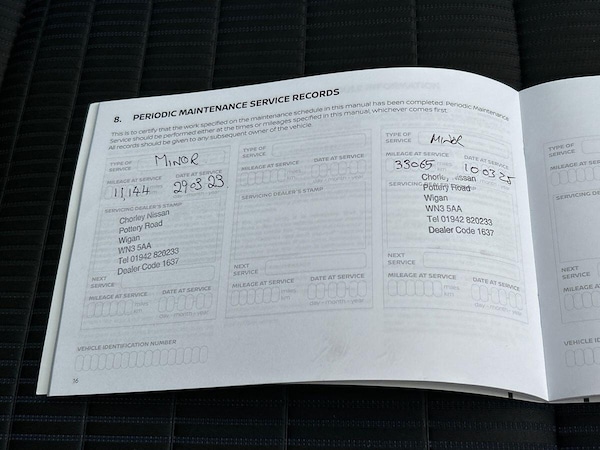 8. PERIODIC MAINTENANCE SERVICE RECORDS
This is to certify that the work specified on the maintenance schedule in this manual has been completed. Periodic Maintenance
Service should be performed either at the times or mileages specified in this manual, whichever comes first.
All records should be given to any subsequent owner of the vehicle.
TYPE OF
SERVICE
MINOR
MILEAGE AT SERVICE
DATE AT SERVICE
11,144
29 03 23
SERVICING DEALER'S STAMP
Chorley Nissan
Pottery Road
Wigan
WN3 5AA
Tel 01942 820233
Dealer Code 1637
NEXT
SERVICE
MILEAGE AT SERVICE
DATE AT SERVICE
miles
km
day - month - year
TYPE OF
SERVICE
MILEAGE AT SERVICE
DATE AT SERVICE
SERVICING DEALER'S STAMP
NEXT
SERVICE
MILEAGE AT SERVICE
DATE AT SERVICE
miles
km
day - month - year
TYPE OF
SERVICE
MINOR
MILEAGE AT SERVICE
DATE AT SERVICE
33065
10 03 25
SERVICING
Nissan
Pottery Road
Wigan
WN3 5AA
Tel 01942 820233
Dealer Code 1637
NEXT
SERVICE
MILEAGE AT SERVICE
DATE AT SERVICE
miles
km
day - month - year
VEHICLE IDENTIFICATION NUMBER
16
TYPE OF
SERVICE
MILEAGE AT SE
SERVICING DE
NEXT
SERVICE
MILEAGE A
VEHICLE ID